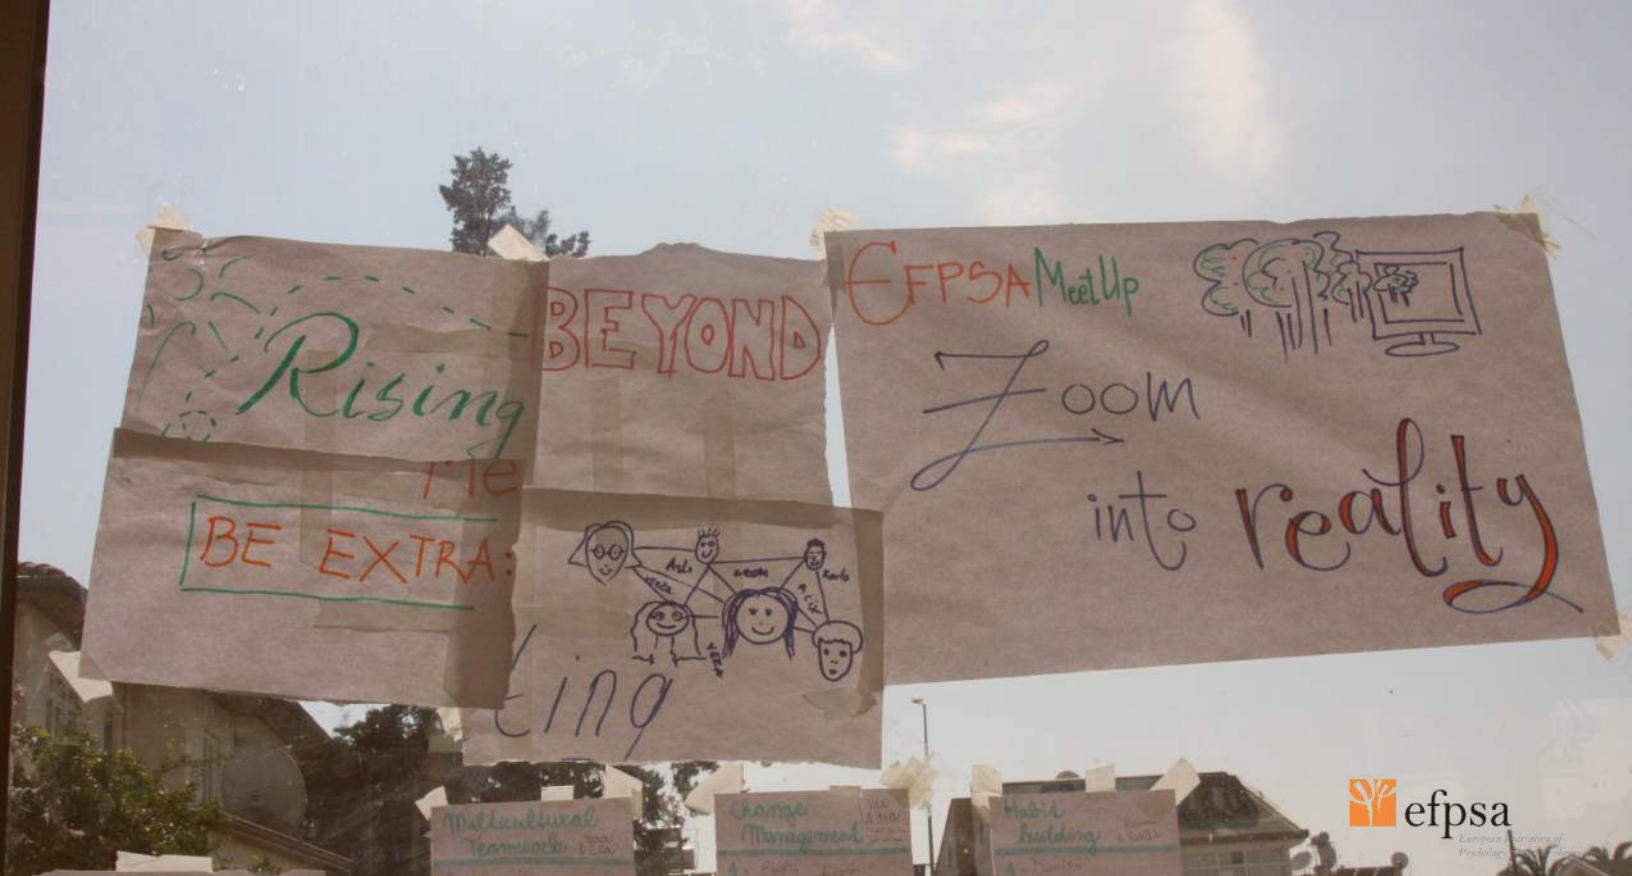 Rising
BEYOND
me
BE EXTRA:
ting
EFPSA MeetUp
Zoom
into reality
Multicultural
Teamwork
Change
Management
Habit
building
efpsa
European Federation of
Psychology